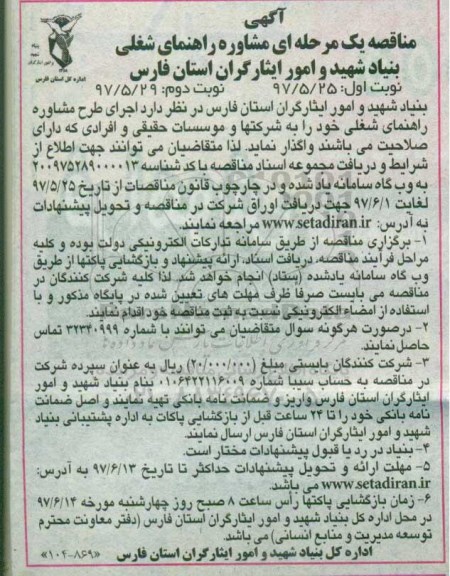 آگهی
مناقصه یک مرحله ای مشاوره راهنمای شغلی
بنیاد شهید و امور ایثارگران استان فارس
اداره کل استان فارس
نوبت اول: ۹۷/۵/۲۵ نوبت دوم: ۹۷/۵/۲۹
بنیاد شهید و امور ایثارگران استان فارس در نظر دارد اجرای طرح مشاوره
راهنمای شغلی خود را به شرکتها و موسسات حقیقی و افرادی که دارای
صلاحیت می باشند واگذار نماید. لذا متقاضیان می توانند جهت اطلاع از
شرایط و دریافت مجموعه اسناد مناقصه با کد شناسه ۲۰۰۹۷۵۲۸۹۰۰۰۰۱۳
به وب گاه سامانه یاد شده و در چارچوب قانون مناقصات از تاریخ ۹۷/۵/۲۵
لغایت ۹۷/۶/۱ جهت دریافت اوراق شرکت در مناقصه و تحویل پیشنهادات
به آدرس: www.setadiran.ir مراجعه نمایند.
۱- برگزاری مناقصه از طریق سامانه تدارکات الکترونیکی دولت بوده و کلیه
مراحل فرآیند مناقصه، دریافت اسناد، ارائه پیشنهاد و بازگشایی پاکتها از طریق
وب گاه سامانه یادشده (ستاد) انجام خواهد شد. لذا کلیه شرکت کنندگان در
مناقصه می بایست صرفا ظرف مهلت های تعیین شده در پایگاه مذکور و با
استفاده از امضاء الکترونیکی نسبت به ثبت مناقصه خود اقدام نمایند.
۲- درصورت هرگونه سوال متقاضیان می توانند با شماره ۳۲۳۴۰۹۹۹ تماس
حاصل نمایند.
۳- شرکت کنندگان بایستی مبلغ (۲۰/۰۰۰/۰۰۰) ریال به عنوان سپرده شرکت
در مناقصه به حساب سیبا شماره ۰۱۰۶۴۲۲۱۱۶۰۰۹ بنام بنیاد شهید و امور
ایثارگران استان فارس واریز و ضمانت نامه بانکی تهیه نمایند و اصل ضمانت
نامه بانکی خود را تا ۲۴ ساعت قبل از بازگشایی پاکات به اداره پشتیبانی بنیاد
شهید و امور ایثارگران استان فارس ارسال نمایند.
۴- بنیاد در رد یا قبول پیشنهادات مختار است.
۵- مهلت ارائه و تحویل پیشنهادات حداکثر تا تاریخ ۹۷/۶/۱۳ به آدرس:
www.setadiran.ir می باشد.
۶- زمان بازگشایی پاکتها رأس ساعت ۸ صبح روز چهارشنبه مورخه ۹۷/۶/۱۴
در محل اداره کل بنیاد شهید و امور ایثارگران استان فارس (دفتر معاونت محترم
توسعه مدیریت و منابع انسانی) می باشد.
اداره کل بنیاد شهید و امور ایثارگران استان فارس «۱۰۴-۸۶۹»